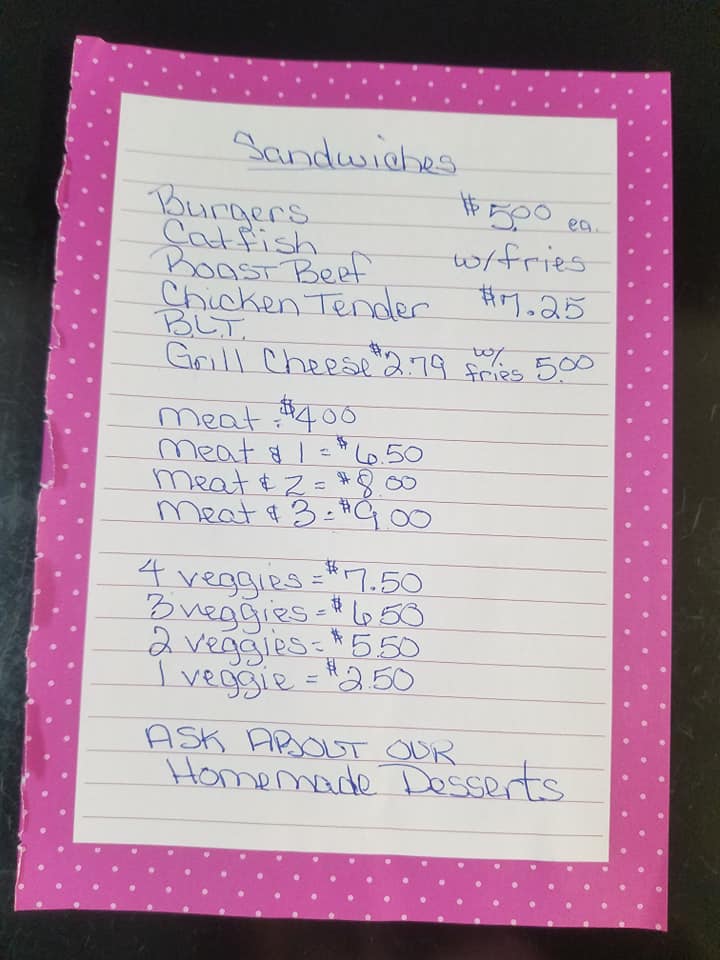 Sandwiches
Burgers $5.00 ea.
Catfish
Roast Beef w/fries
Chicken Tender $7.25
B.L.T.
Grill Cheese $2.79 w/ fries 5.00
meat = $4.00
meat & 1 = $6.50
meat & 2 = $8.00
meat & 3 = $9.00
4 veggies = $7.50
3 veggies = $6.50
2 veggies = $5.50
1 veggie = $2.50
ASK ABOUT OUR
Homemade Desserts